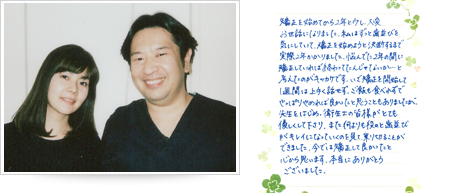 矯正を始めてから2年と少し、大変
お世話になりました。私はずっと歯並びを
気にしていて、矯正を始めようと決断するまで
実際2年かかりました。悩んでた2年の間に
矯正していれば終わってたんじゃないか…と
考えたのがキッカケです。いざ矯正を開始して
1週間は上手く話せず、ご飯も食べれずで
やっぱりやめれば良かったと思うこともありましたが、
先生をはじめ、衛生士の皆様がとても
優しくして下さり、また何よりも段々と歯並び
がキレイになっていくのを見て乗り切ることが
できました。今では矯正して良かったと
心から思います。本当にありがとう
ございました。